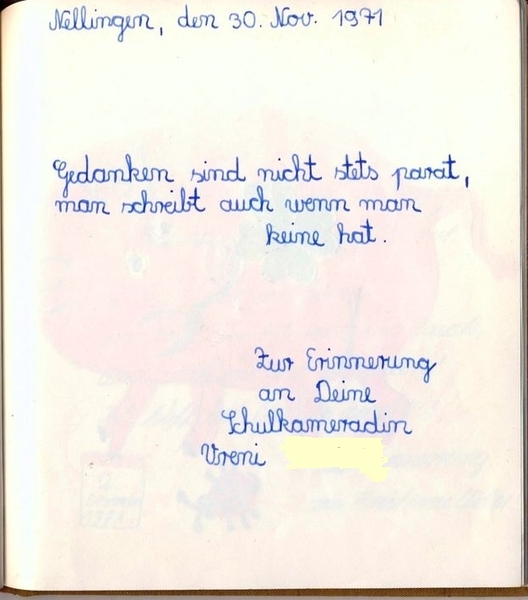 Nellingen, den 30. Nov. 1971
Gedanken sind nicht stets parat,
man schreibt auch wenn man
keine hat.
Zur Erinnerung
an Deine
Schulkameradin
Vreni